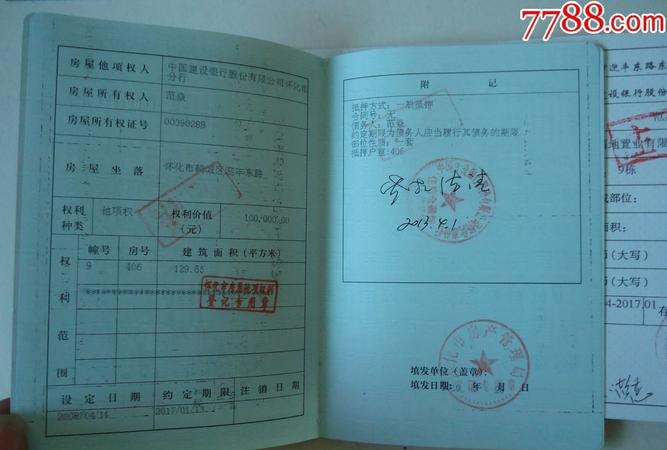 7788.com
房屋他项权人
中国建设银行股份有限公司怀化市
分行
房屋所有权人
范焱
房屋所有权证号
00090288
房屋坐落
怀化市鹤城区迎丰东路
权利
种类
他项权
权利价值
(元)
100,000.00
幢号 房号 建筑面积(平方米)
9 406 129.65
权利范围
怀化市房屋他项权利
登记专用章
设定日期 约定期限 注销日期
2008/04/14 2017/01/13
附记
抵押方式:一般抵押
合同号:无
债务人:范焱
约定期限为债务人应当履行其债务的期限
部位性质:一套
抵押户室:406
2013.4.1
怀化市房产管理局
填发单位(盖章):
填发日期: 年 月 日
迎丰东路东
设银行股份
地置业有限
9栋
部位:
面积:
(大写)
(大写)
4-2017 01